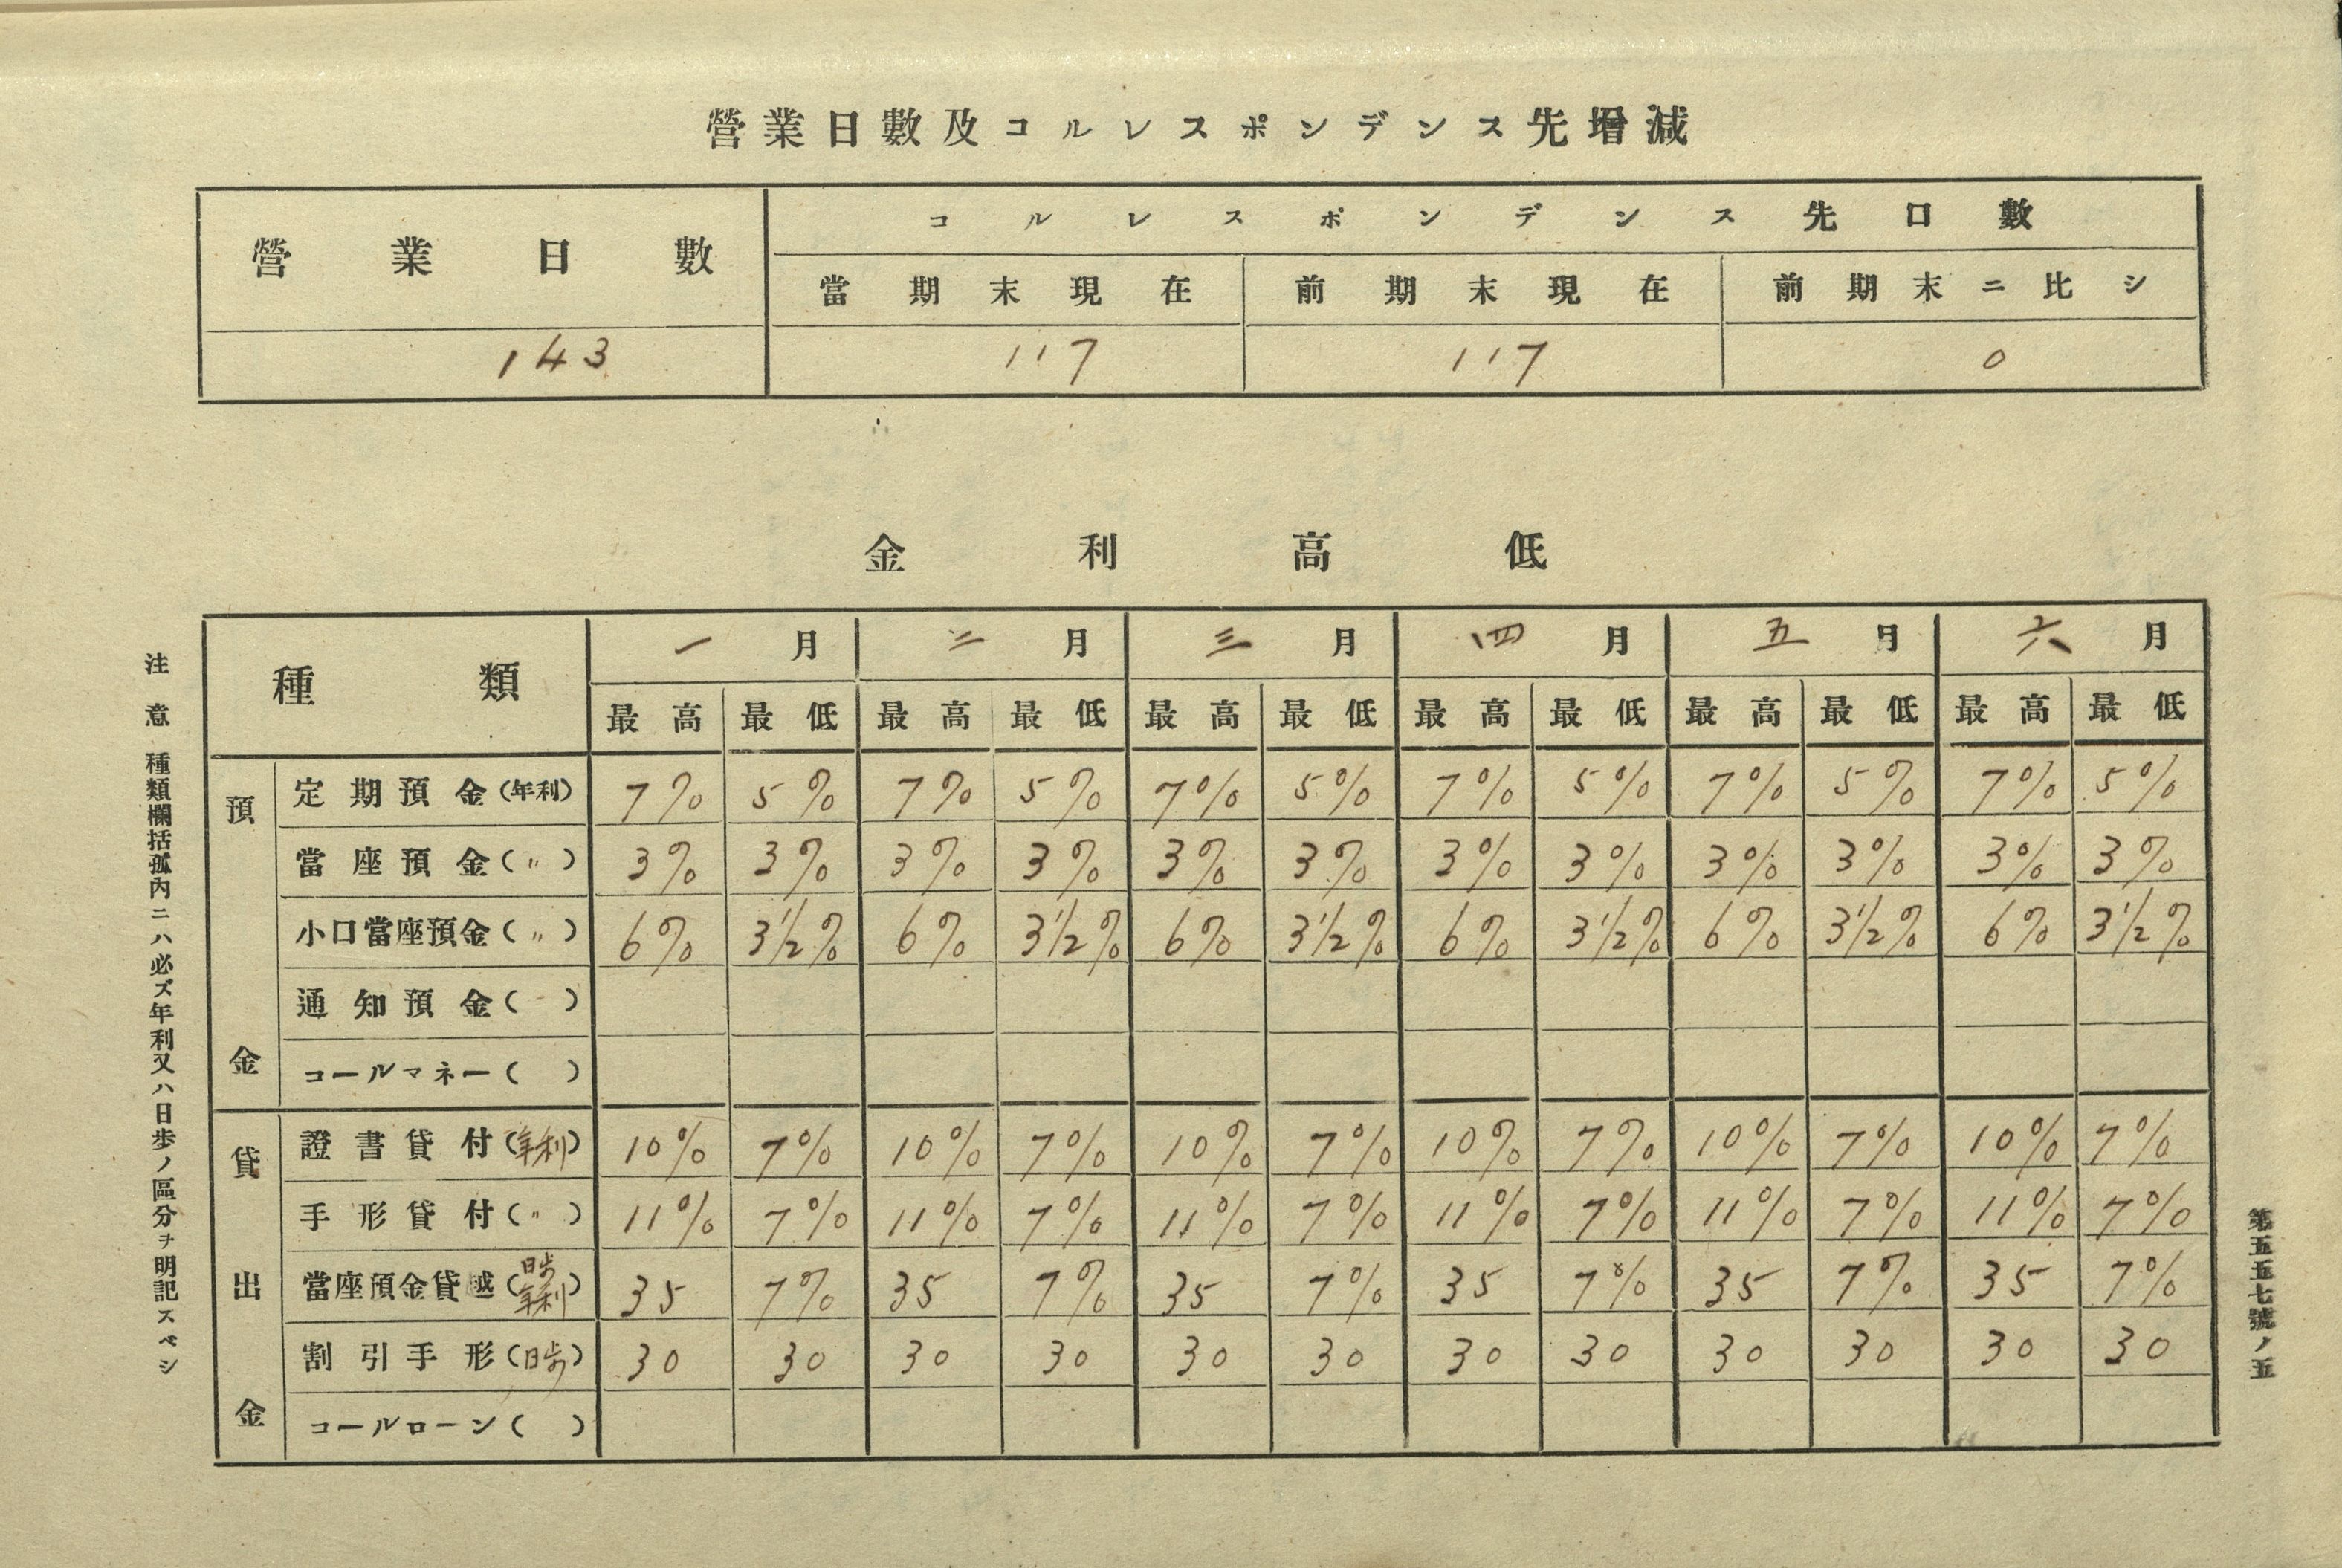 營業日數及コルレスポンデンス先增減
營業日數
コルレスポンデンス先口數
當期末現在 前期末現在 前期末ニ比シ
143 117 117 0
金利高低
種類 一月 二月 三月 四月 五月 六月
最高 最低 最高 最低 最高 最低 最高 最低 最高 最低 最高 最低
預金
定期預金(年利) 7% 5% 7% 5% 7% 5% 7% 5% 7% 5% 7% 5%
當座預金(〃) 3% 3% 3% 3% 3% 3% 3% 3% 3% 3% 3% 3%
小口當座預金(〃) 6% 3½% 6% 3½% 6% 3½% 6% 3½% 6% 3½% 6% 3½%
通知預金( )
コールマネー( )
貸出金
證書貸付(年利) 10% 7% 10% 7% 10% 7% 10% 7% 10% 7% 10% 7%
手形貸付(〃) 11% 7% 11% 7% 11% 7% 11% 7% 11% 7% 11% 7%
當座預金貸越(日歩年利) 35 7% 35 7% 35 7% 35 7% 35 7% 35 7%
割引手形(日歩) 30 30 30 30 30 30 30 30 30 30 30 30
コールローン( )
注意 種類欄括孤內ニハ必ズ年利又ハ日歩ノ區分ヲ明記スベシ
第五五七號ノ五